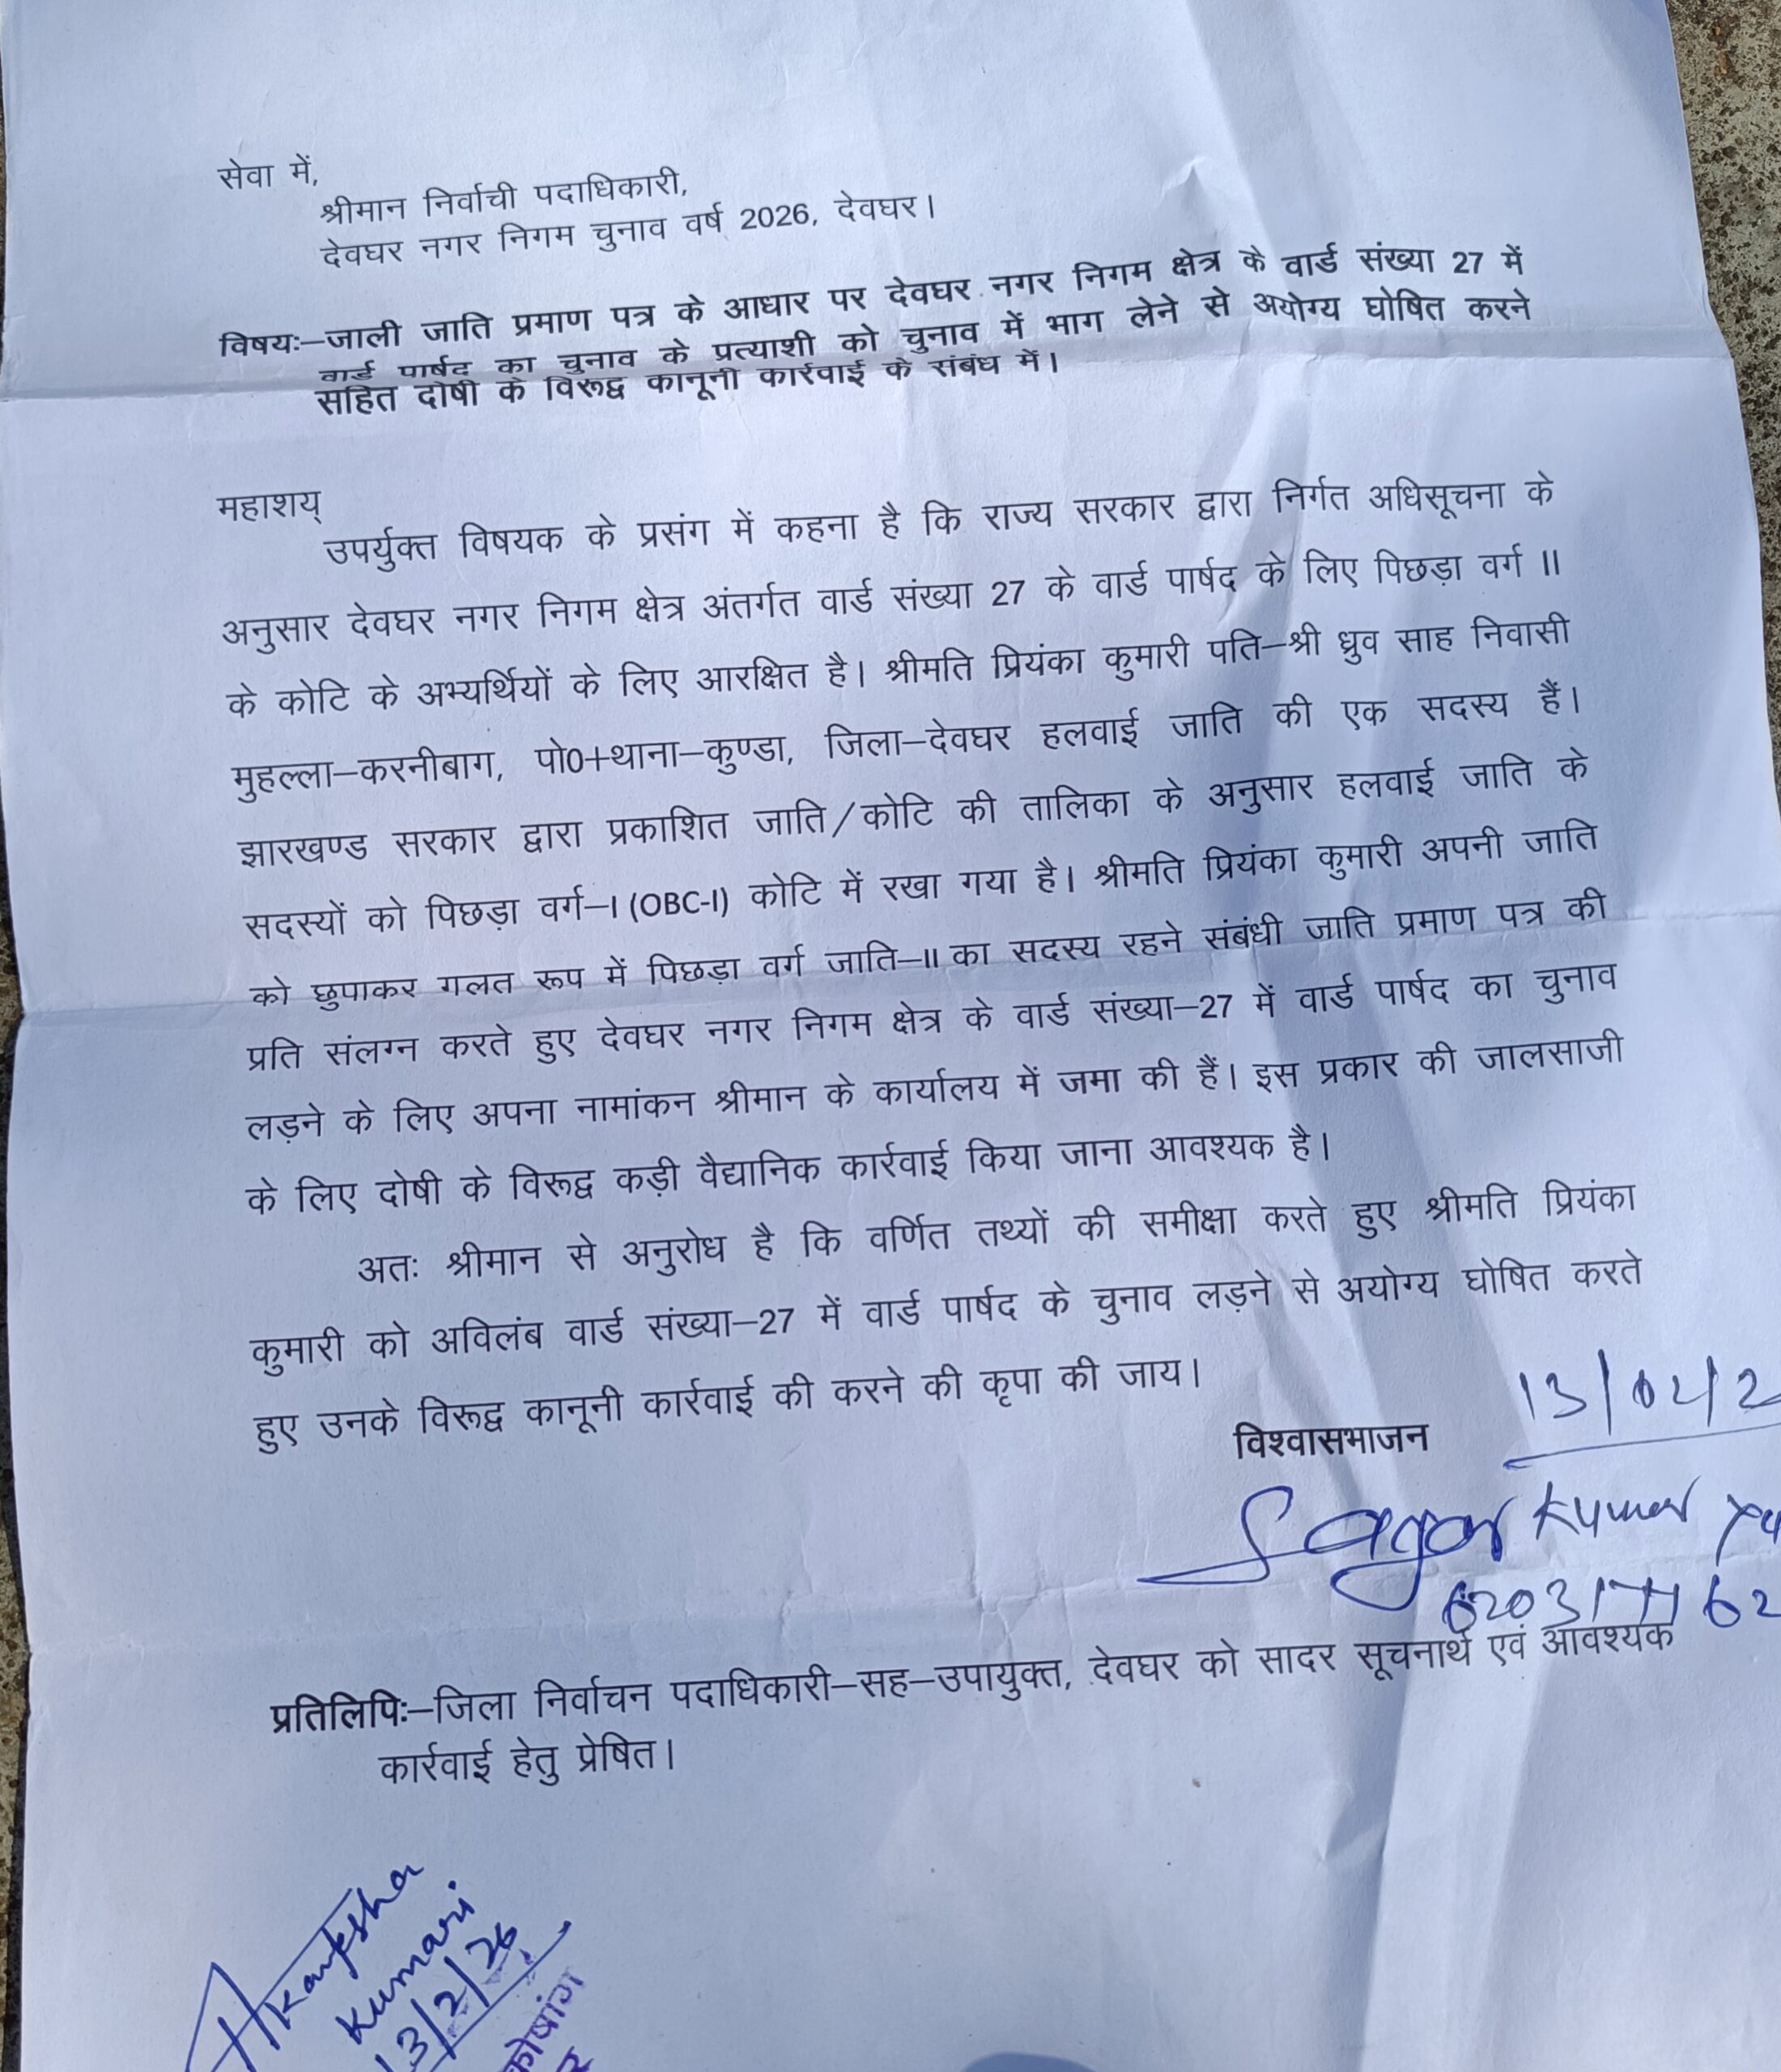 सेवा में,
श्रीमान निर्वाची पदाधिकारी,
देवघर नगर निगम चुनाव वर्ष 2026, देवघर।
विषयः–जाली जाति प्रमाण पत्र के आधार पर देवघर नगर निगम क्षेत्र के वार्ड संख्या 27 में
वार्ड पार्षद का चुनाव के प्रत्याशी को चुनाव में भाग लेने से अयोग्य घोषित करने
सहित दोषी के विरूद्ध कानूनी कार्रवाई के संबंध में।
महाशय्
उपर्युक्त विषयक के प्रसंग में कहना है कि राज्य सरकार द्वारा निर्गत अधिसूचना के
अनुसार देवघर नगर निगम क्षेत्र अंतर्गत वार्ड संख्या 27 के वार्ड पार्षद के लिए पिछड़ा वर्ग II
के कोटि के अभ्यर्थियों के लिए आरक्षित है। श्रीमति प्रियंका कुमारी पति–श्री ध्रुव साह निवासी
मुहल्ला–करनीबाग, पो0+थाना–कुण्डा, जिला–देवघर हलवाई जाति की एक सदस्य हैं।
झारखण्ड सरकार द्वारा प्रकाशित जाति/कोटि की तालिका के अनुसार हलवाई जाति के
सदस्यों को पिछड़ा वर्ग–I (OBC-I) कोटि में रखा गया है। श्रीमति प्रियंका कुमारी अपनी जाति
को छुपाकर गलत रूप में पिछड़ा वर्ग जाति–II का सदस्य रहने संबंधी जाति प्रमाण पत्र की
प्रति संलग्न करते हुए देवघर नगर निगम क्षेत्र के वार्ड संख्या–27 में वार्ड पार्षद का चुनाव
लड़ने के लिए अपना नामांकन श्रीमान के कार्यालय में जमा की हैं। इस प्रकार की जालसाजी
के लिए दोषी के विरूद्ध कड़ी वैद्यानिक कार्रवाई किया जाना आवश्यक है।
अतः श्रीमान से अनुरोध है कि वर्णित तथ्यों की समीक्षा करते हुए श्रीमति प्रियंका
कुमारी को अविलंब वार्ड संख्या–27 में वार्ड पार्षद के चुनाव लड़ने से अयोग्य घोषित करते
हुए उनके विरूद्ध कानूनी कार्रवाई की करने की कृपा की जाय।
विश्वासभाजन
Sagar Kumar
प्रतिलिपिः–जिला निर्वाचन पदाधिकारी–सह–उपायुक्त, देवघर को सादर सूचनार्थ एवं आवश्यक
कार्रवाई हेतु प्रेषित।
Akanksha
Kumari
13/2/26
कोषांग